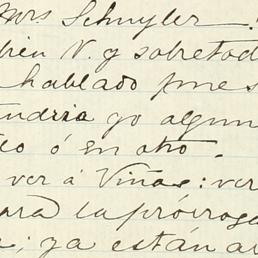 Mrs Schuyler.
bien N. y sobretod
hablado pues
endria yo algun
eo ó en otro.
ver á Viñas: ver
para la próiroga
; ya están a